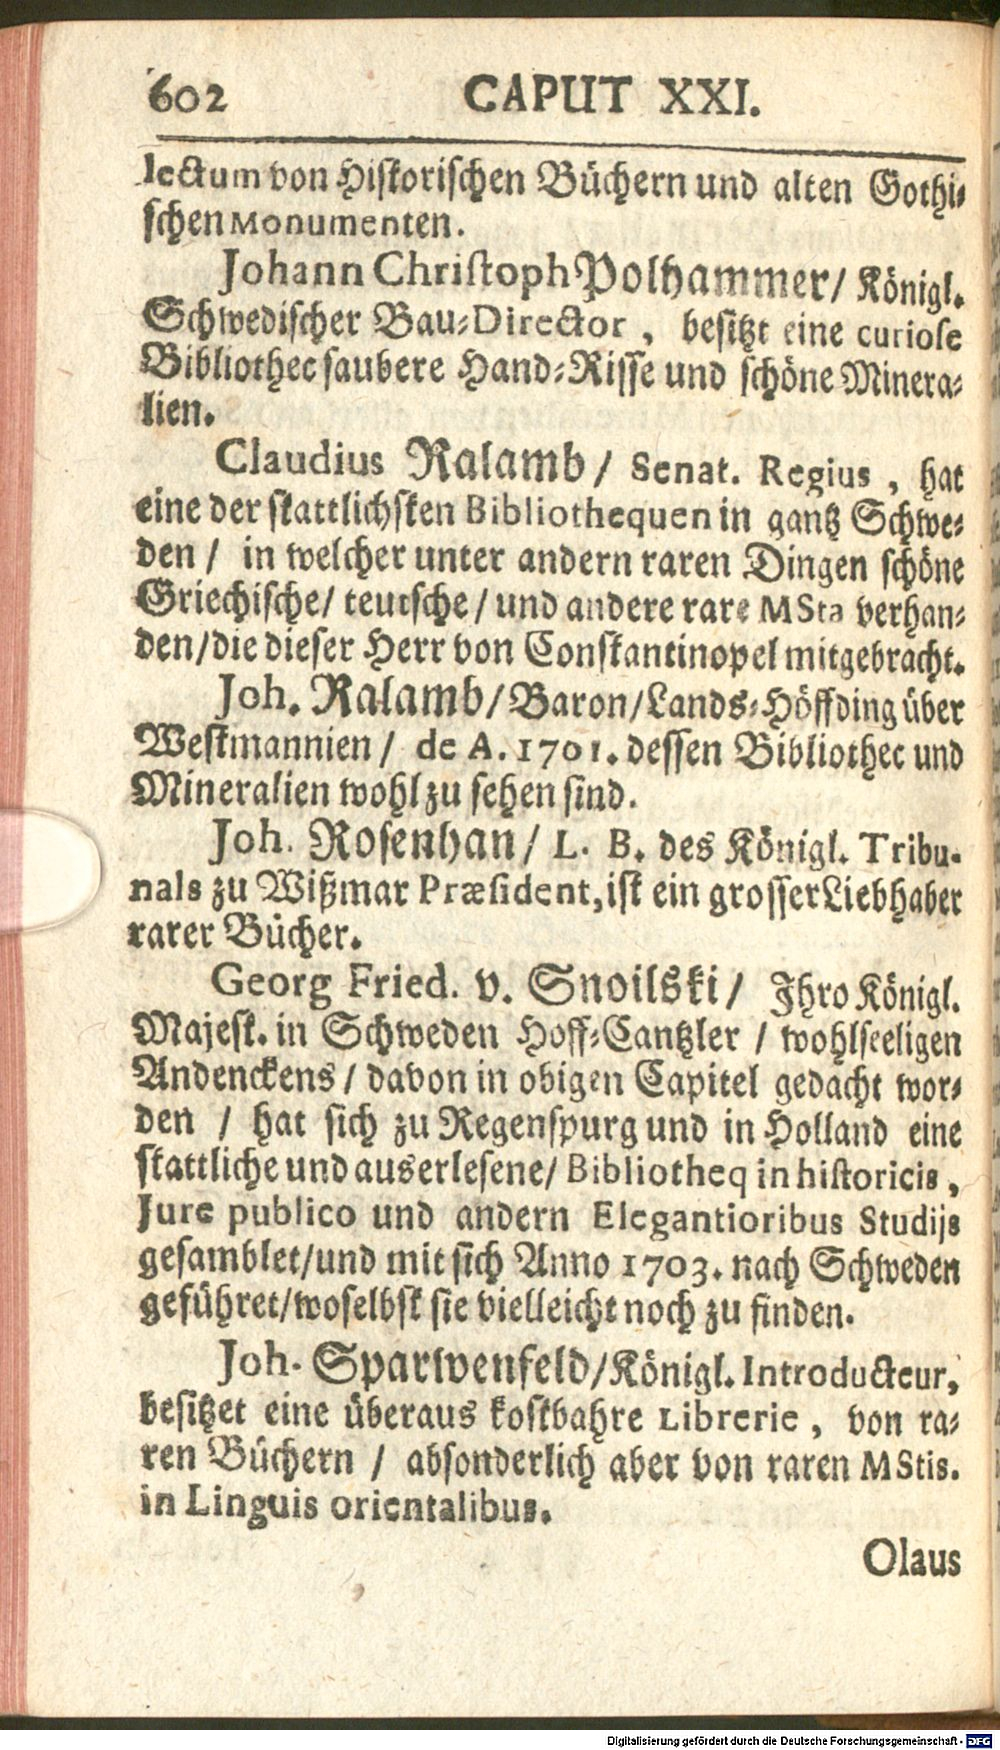 602 CAPUT XXI.
lectum von Historischen Büchern und alten Gothi-
schen Monumenten.
Johann Christoph Polhammer/ Königl.
Schwedischer Bau-Director, besitzt eine curiose
Bibliothec saubere Hand-Risse und schöne Minera-
lien.
Claudius Ralamb/ Senat. Regius, hat
eine der stattlichsten Bibliothequen in gantz Schwe-
den/ in welcher unter andern raren Dingen schöne
Griechische/ teutsche/ und andere rare MSta verhan-
den/ die dieser Herr von Constantinopel mitgebracht.
Joh. Ralamb/ Baron/ Lands-Höffding über
Westmannien/ de A. 1701. dessen Bibliothec und
Mineralien wohl zu sehen sind.
Joh. Rosenhan/ L. B. des Königl. Tribu-
nals zu Wißmar Præsident, ist ein grosser Liebhaber
rarer Bücher.
Georg Fried. v. Snoilski/ Ihro Königl.
Majest. in Schweden Hoff-Cantzler/ wohlseeligen
Andenckens/ davon in obigen Capitel gedacht wor-
den/ hat sich zu Regenspurg und in Holland eine
stattliche und auserlesene/ Bibliotheq in historicis,
Jure publico und andern Elegantioribus Studijs
gesamblet/ und mit sich Anno 1703. nach Schweden
geführet/ woselbst sie vielleicht noch zu finden.
Joh. Sparwenfeld/ Königl. Introducteur,
besitzet eine überaus kostbahre Librerie, von ra-
ren Büchern/ absonderlich aber von raren MStis.
in Linguis orientalibus.
Olaus
Digitalisierung gefördert durch die Deutsche Forschungsgemeinschaft - DFG